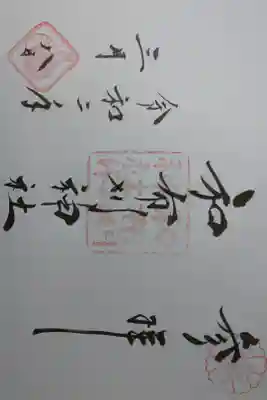 奉拝
和布刈神社
令和二年
三月八日